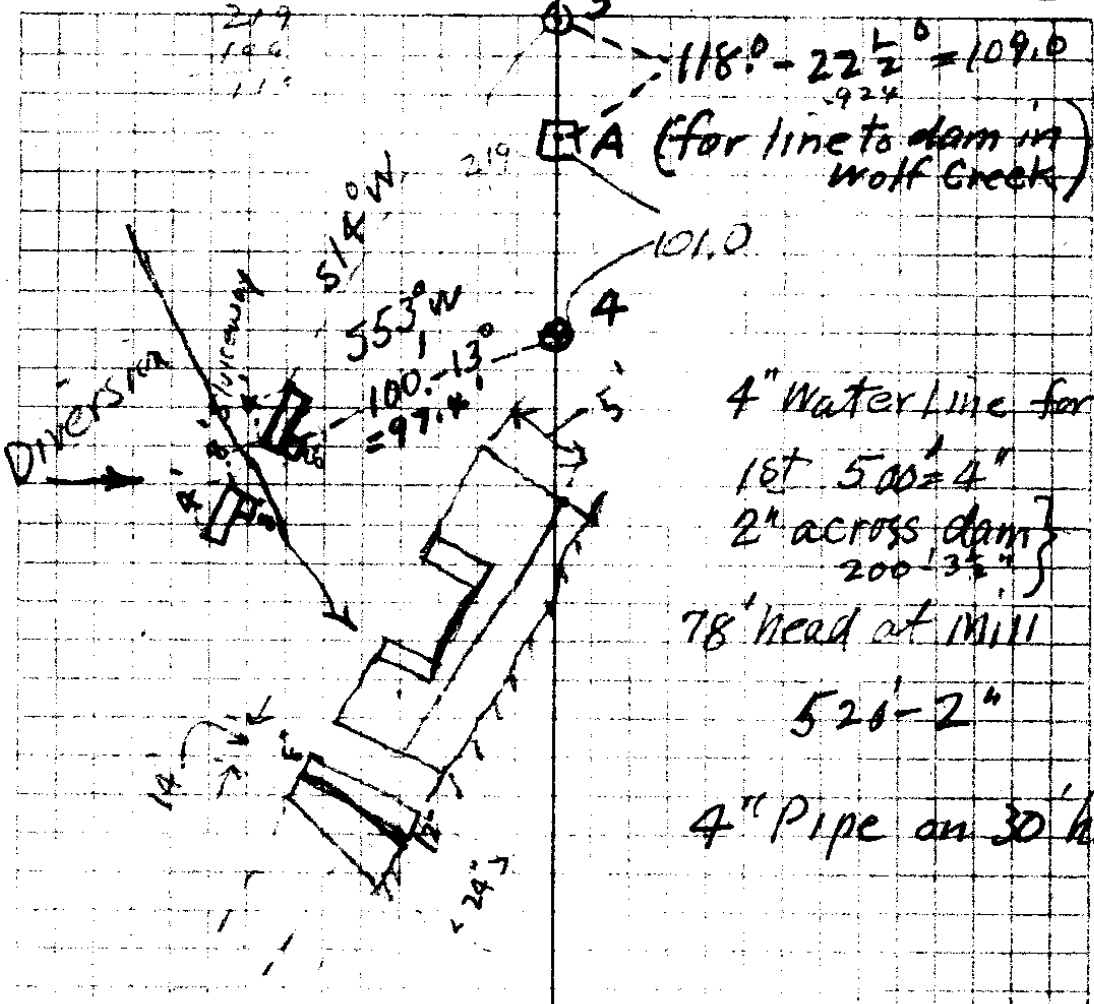 219
3
118.0 - 22 1/2° = 109.0
.924
A (for line to dam in
Wolf Creek)
219
101.0
S14°W
S53°W
4
100.'-13°
= 97.4'
Diversion
8'
4'
5'
4" Water line for
1st 500' = 4"
2" across dam }
200' 3 1/2" }
78' head at Mill
520'-2"
14'
4" Pipe on 30' h
24"